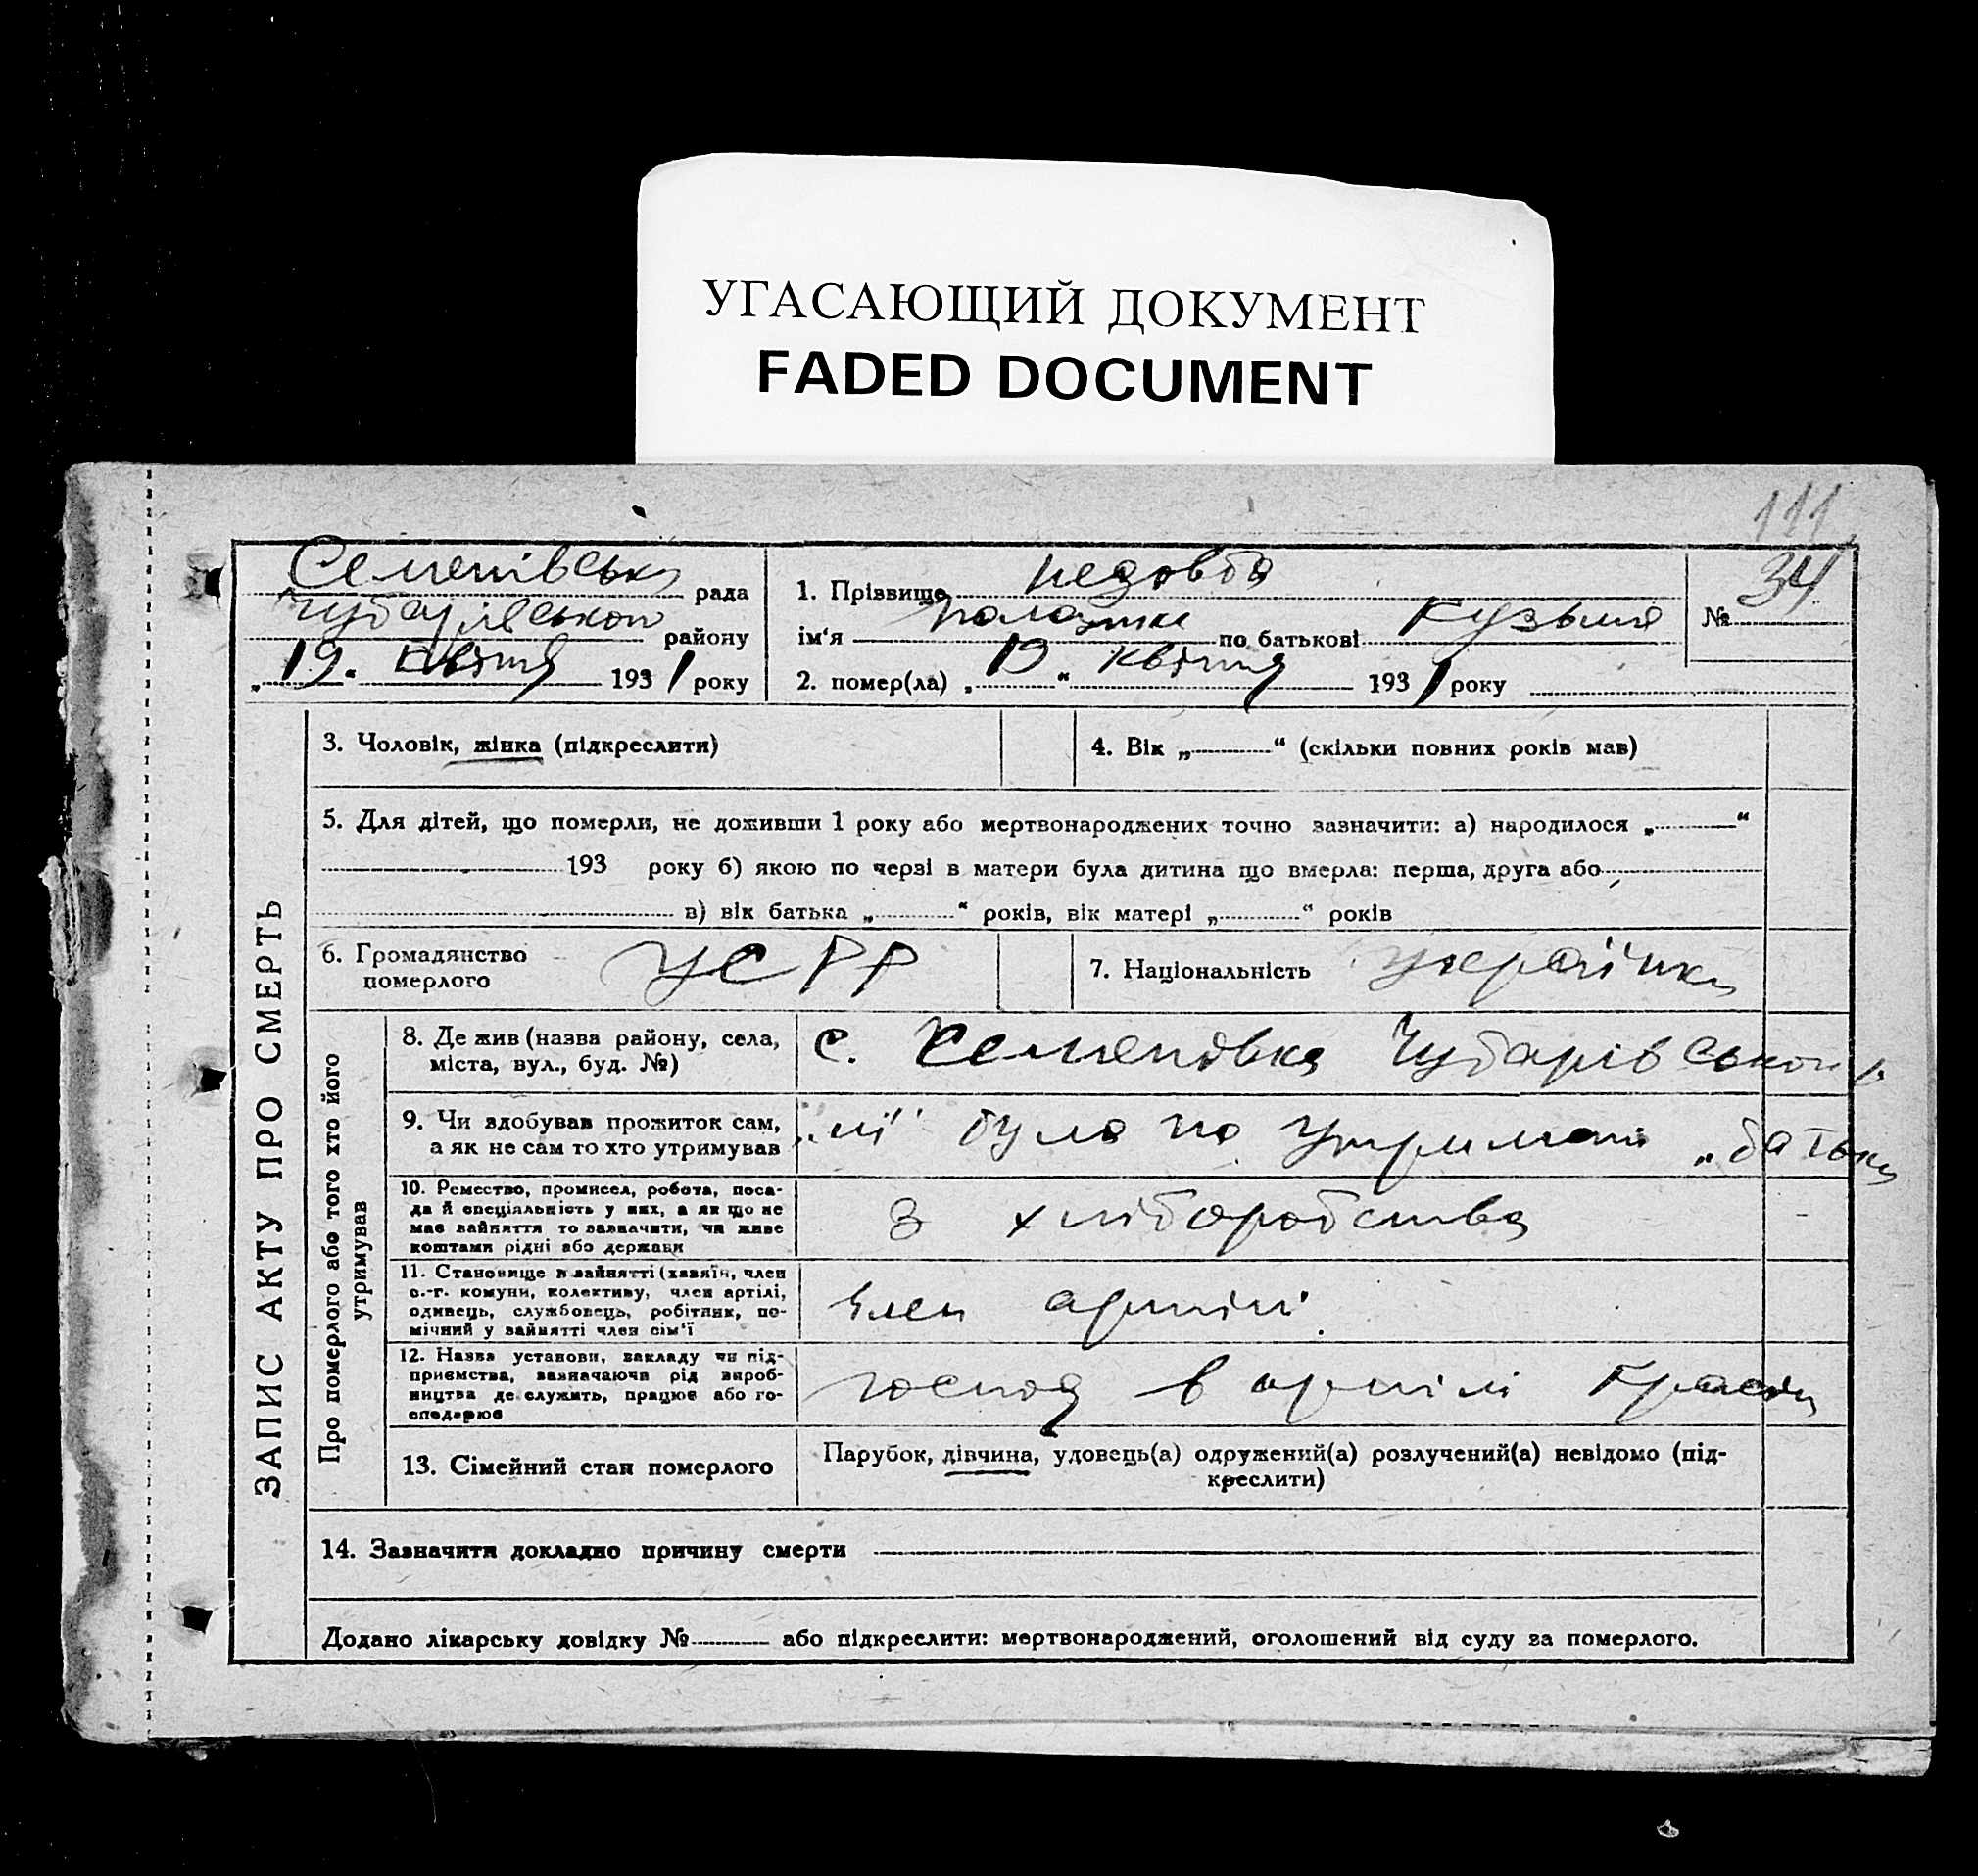 УГАСАЮЩИЙ ДОКУМЕНТ
FADED DOCUMENT
111
ЗАПИС АКТУ ПРО СМЕРТЬ
Семенівська рада
Чубарівського району
„19“ квітня 1931 року
1. Прізвище
ім'я Палажка по батькові Кузьмів
2. помер(ла) „19“ квітня 1931 року
№ 34
3. Чоловік, жінка (підкреслити)
4. Вік „ “ (скільки повних років мав)
5. Для дітей, що померли, не доживши 1 року або мертвонароджених точно зазначити: а) народилося „ “
193 року б) якою по черзі в матери була дитина що вмерла: перша, друга або
в) вік батька „ “ років, вік матері „ “ років
6. Громадянство
померлого
УСРР
7. Національність Українка
Про померлого або того хто його
утримував
8. Де жив (назва району, села,
міста, вул., буд. №)
с. Семенівка Чубарівського р
9. Чи здобував прожиток сам,
а як не сам то хто утримував
ні була на утриманні „батька
10. Ремество, промисел, робота, поса-
да й спеціяльність у них, а як що не
має зайняття то зазначити, чи живе
коштами рідні або держави
З хліборобства
11. Становище в зайнятті (хазяїн, член
с.-г. комуни, колективу, член артілі,
одинець, службовець, робітник, по-
мічний у зайнятті член сім'ї
Член артілі.
12. Назва установи, закладу чи під-
приємства, зазначаючи рід вироб-
ництва де служить, працює або го-
сподарює
в артілі
13. Сімейний стан померлого
Парубок, дівчина, удовець(а) одружений(а) розлучений(а) невідомо (під-
креслити)
14. Зазначити докладно причину смерти
Додано лікарську довідку № або підкреслити: мертвонароджений, оголошений від суду за померлого.